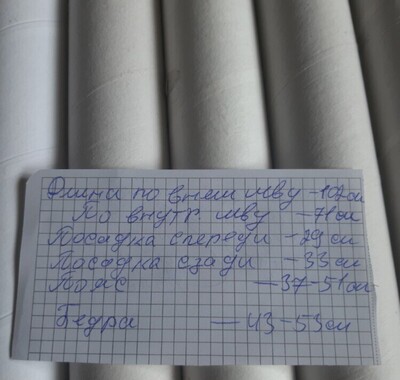 Длина по внеш шву - 102см
По внутр шву - 71см
Посадка спереди - 29см
Посадка сзади - 33см
Пояс - 37-51см
Бедра - 43-53см